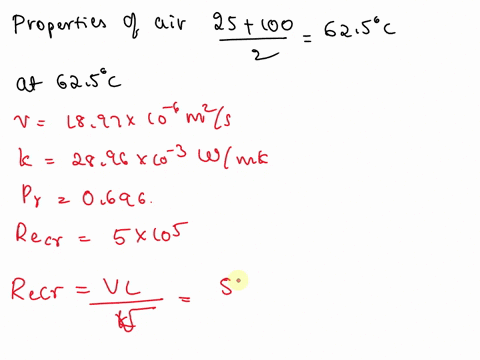 Properties of air (25 + 100)/2 = 62.5°C
at 62.5°C
ν = 18.97 × 10⁻⁶ m²/s
k = 28.96 × 10⁻³ W/mk
Pr = 0.696.
Recr = 5 × 10⁵
Recr = VL/ν = 5